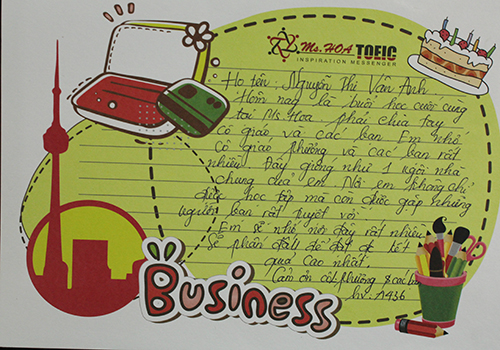 Ms. HOA TOEIC
INSPIRATION MESSENGER
Họ tên: Nguyễn Thị Vân Anh
Hôm nay là buổi học cuối cùng
tại Ms Hoa phải chia tay
cô giáo và các bạn Em nhớ
cô giáo Phường và các bạn rất
nhiều. Đây giống như 1 ngôi nhà
chung của em. Nơi em không chỉ
được học tập mà còn được gặp những
người bạn rất tuyệt vời.
Em sẽ nhớ nơi đây rất nhiều
Sẽ phấn đấu để đạt đc kết
quả cao nhất.
Cảm ơn cô Phường & các
hv: A436
Business